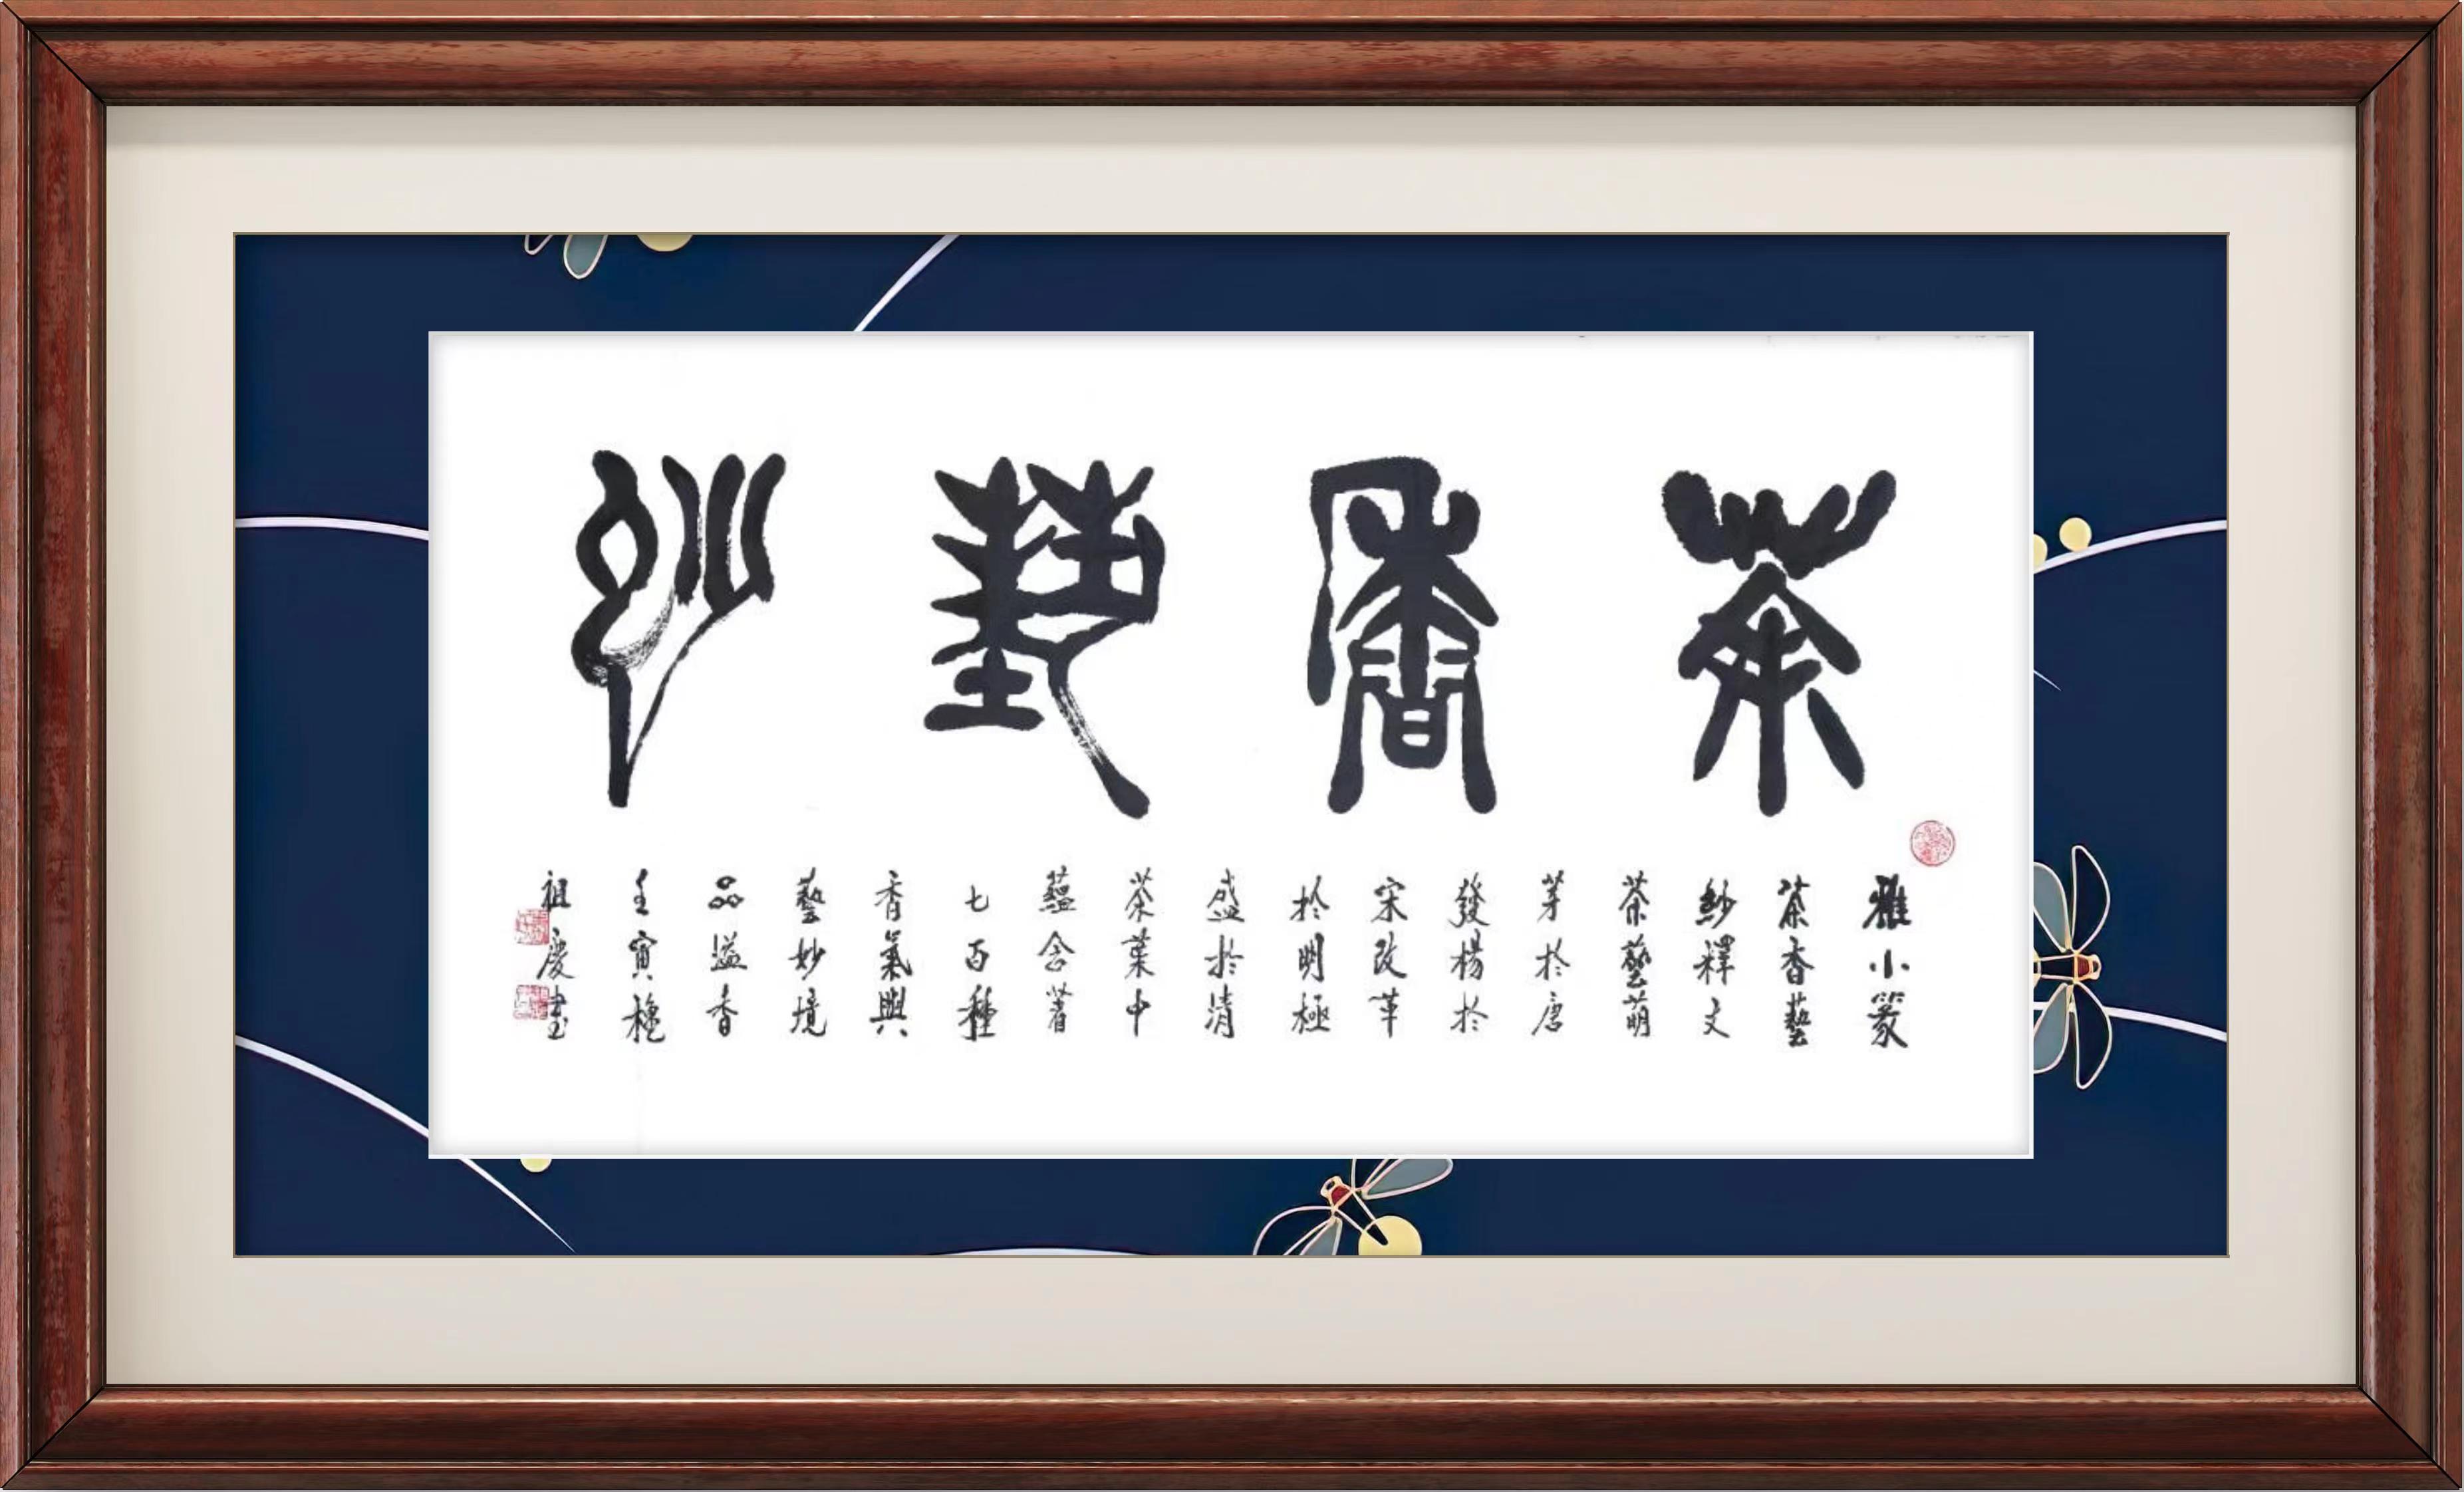 茶香藝妙
雅小篆
茶香藝
妙釋文
茶藝萌
芽於唐
發楊於
宋改革
於明極
盛於清
茶葉中
蘊含著
七百種
香氣與
藝妙境
品溢香
壬寅穐
祖慶書